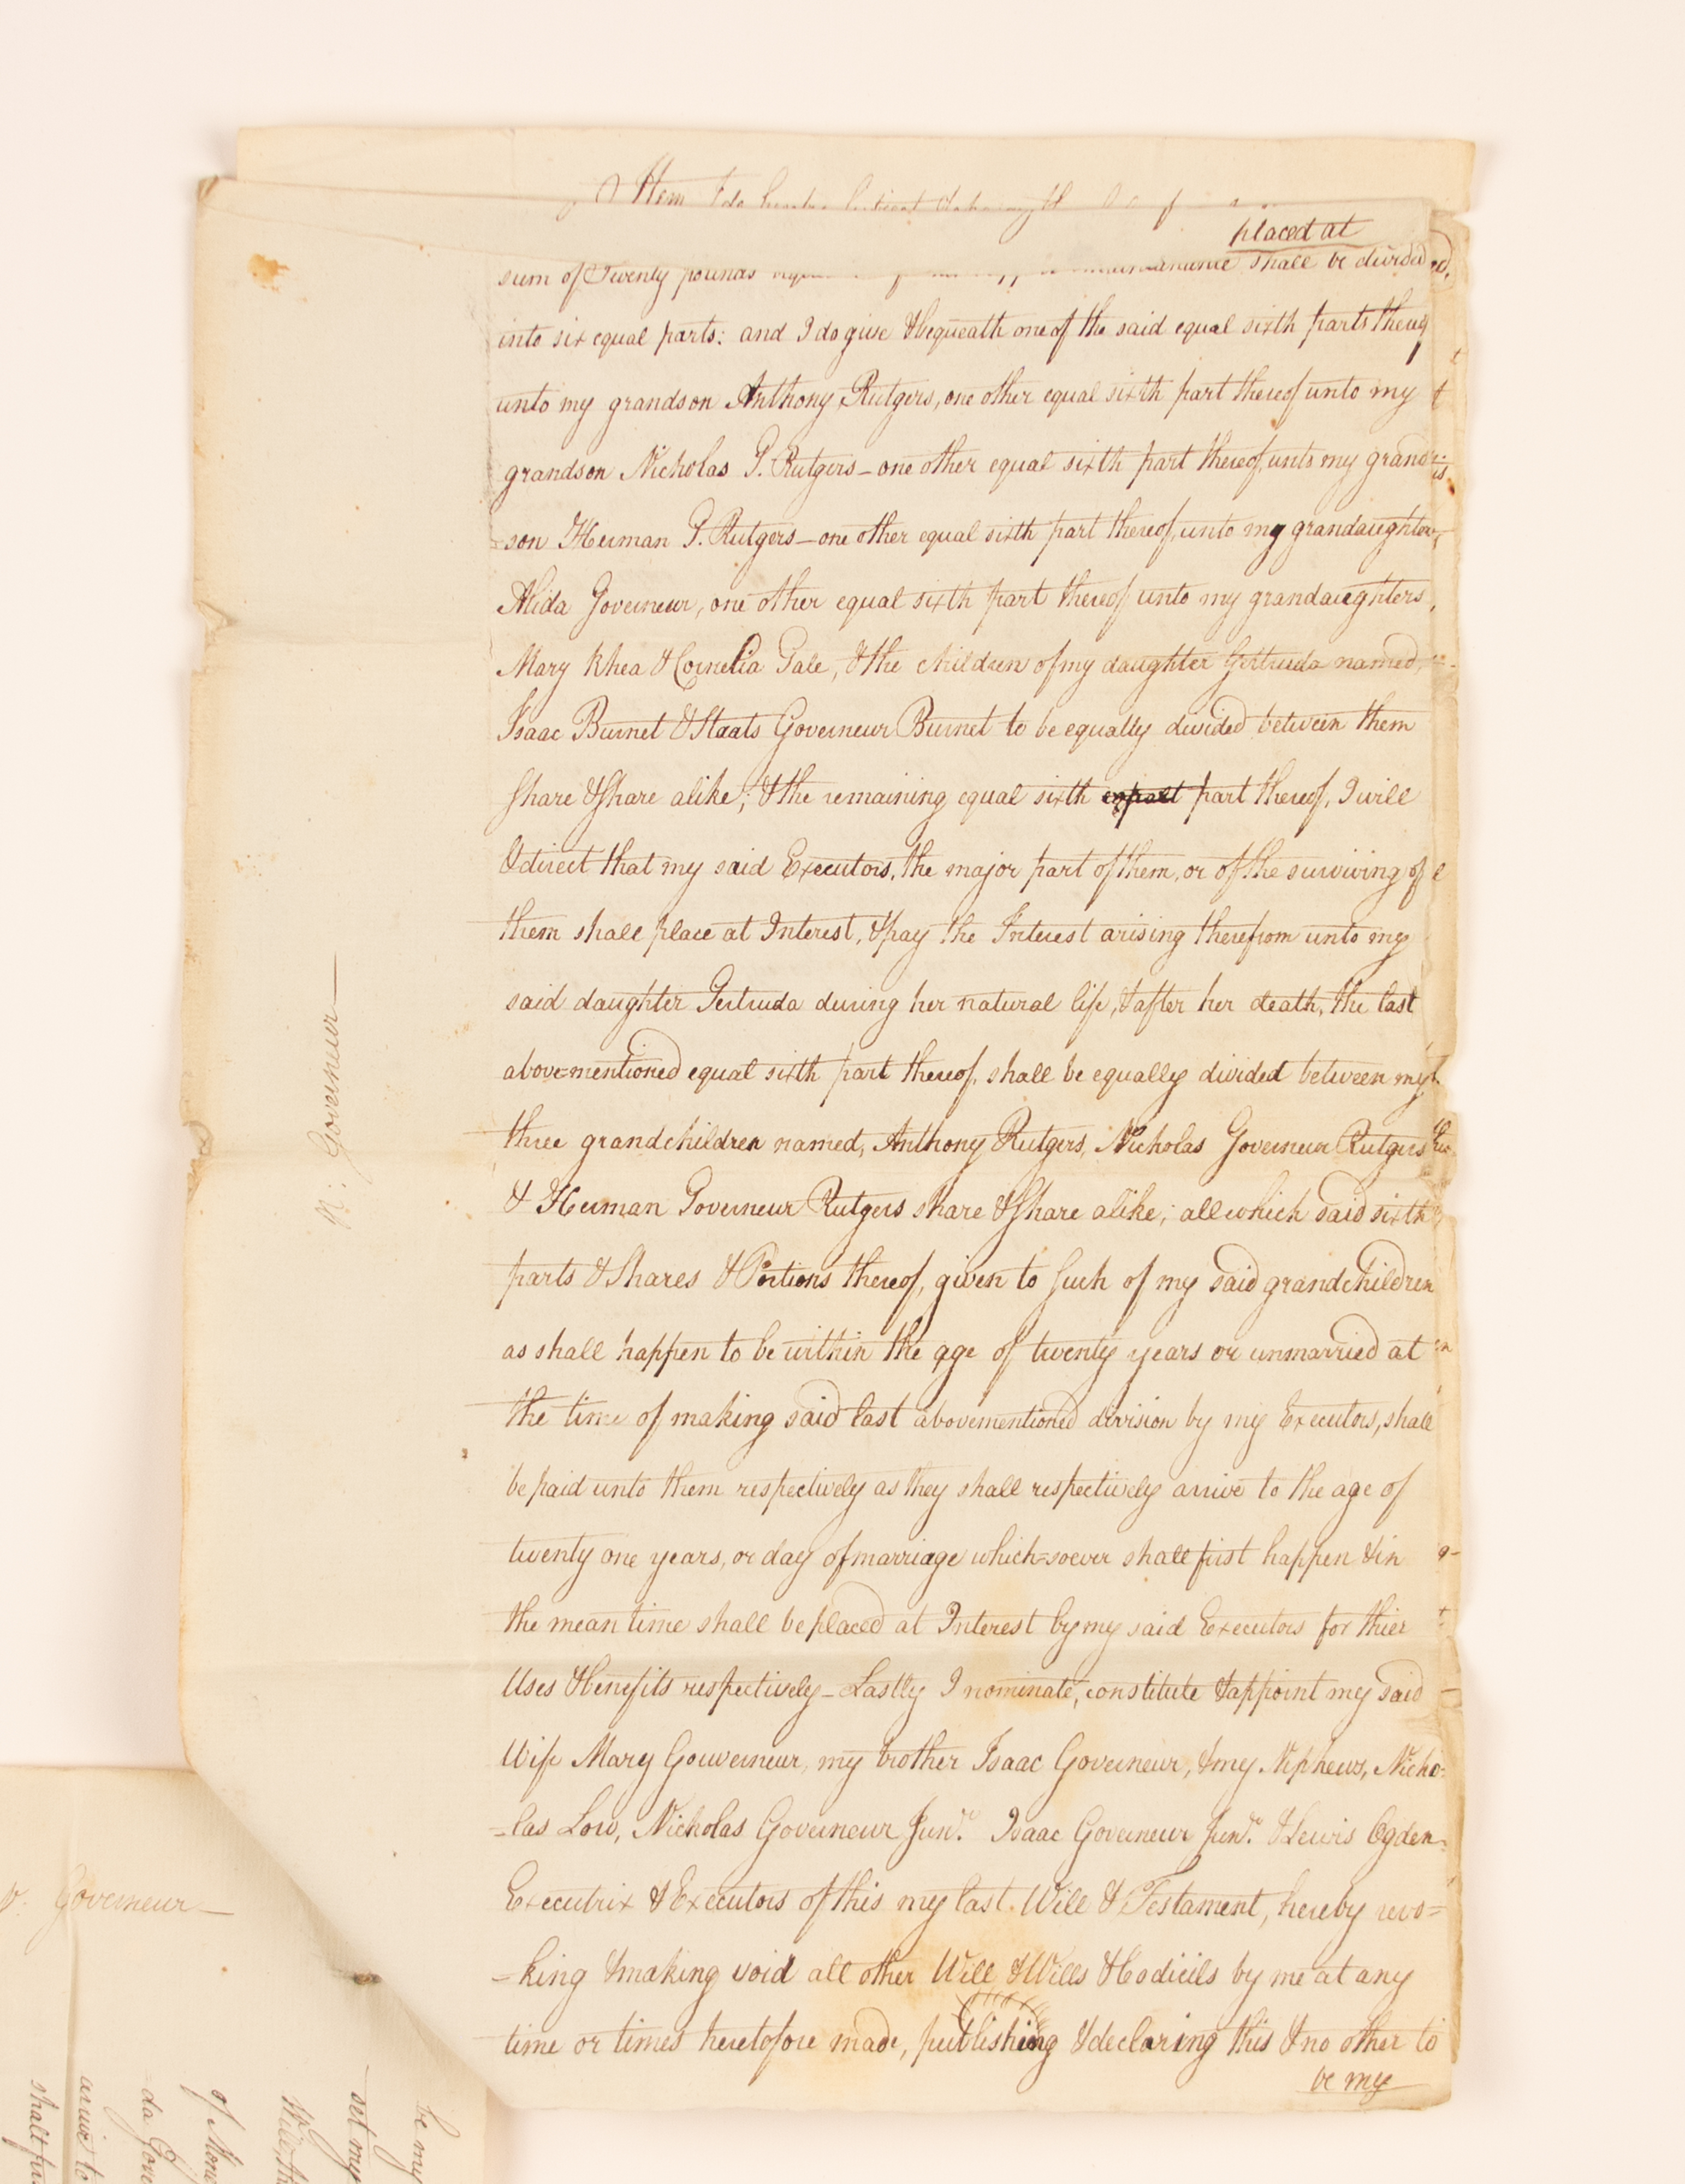 Item I do
placed at
sum of Twenty pounds shall be divided
into six equal parts: and I do give & bequeath one of the said equal sixth parts thereof
unto my grandson Anthony Rutgers, one other equal sixth part thereof unto my
grandson Nicholas G. Rutgers – one other equal sixth part thereof, unto my grand-
-son Herman G. Rutgers – one other equal sixth part thereof, unto my grandaughter,
Alida Governeur, one other equal sixth part thereof unto my grandaughters,
Mary Rhea & Cornelia Gale, & the children of my daughter Gertruda named,
Isaac Burnet & Staats Governeur Burnet to be equally divided between them
share & share alike; & the remaining equal sixth part thereof, I will
& direct that my said Executors, the major part of them, or of the surviving of
them shall place at Interest, & pay the Interest arising therefrom unto my
said daughter Gertruda during her natural life, & after her death, the last
above=mentioned equal sixth part thereof, shall be equally divided between my
three grandchildren named, Anthony Rutgers, Nicholas Governeur Rutgers
& Herman Governeur Rutgers share & share alike; all which said sixth
parts & Shares & Portions thereof, given to such of my said grandchildren
as shall happen to be within the age of twenty years or unmarried at
the time of making said last abovementioned division by my Executors, shall
be paid unto them respectively as they shall respectively arrive to the age of
twenty one years, or day of marriage which=soever shall first happen & in
the mean time shall be placed at Interest by my said Executors for thier
Uses & benefits respectively – Lastly I nominate, constitute & appoint my said
Wife Mary Gouverneur, my brother Isaac Governeur, & my Nephews, Nicho-
-las Low, Nicholas Governeur Junr. Isaac Governeur Junr. & Lewis Ogden
Executrix & Executors of this my last Will & Testament, hereby revo=
-king & making void all other Will & Wills & Codicils by me at any
time or times heretofore made, publishing & declaring this & no other to
be my
N: Governeur –
Governeur –
be my
set my
of Mone
da Gove
arrive to
shall fir